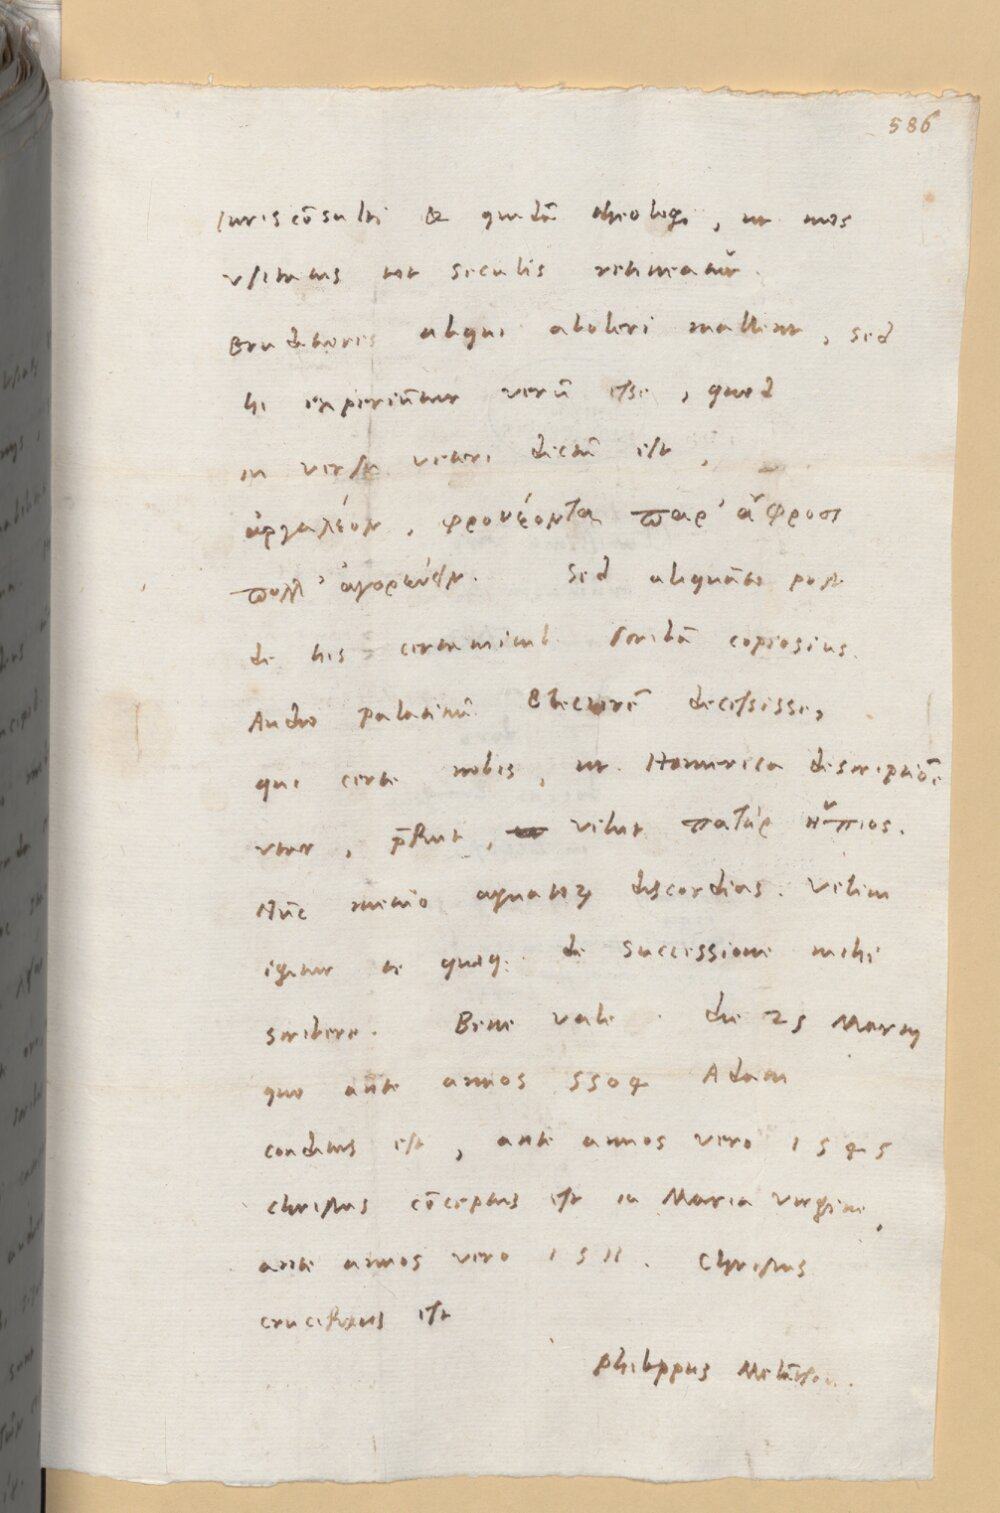 586
Iurisco͞sulti & quida͞ theologi, ut mos
usitatus tot seculis retineatur.
Eruditiores aliqui aboleri mallent, sed
hi experiu͞tur veru͞ esse, quod
in versu veteri dictu͞ est,
ἀργαλέον, φρονέοντα παρ' ἄφροσι
πολλ' ἀγορεύειν. Sed aliqua͞to post
de his certaminib. scriba͞ copiosius.
Audio palatinu͞ Electore͞ decessisse,
qui certe nobis, ut Homerica descriptio͞e
utar, p͞fuit, velut πατὴρ ἤπιος.
Nu͞c metuo agnatoꝝ discordias. Velim
igitur te quoq: de successione mihi
scribere. Bene vale. die 25 Martij
quo ante annos 5504 Adam
conditus est, ante annos vero 1545
Christus co͞ceptus est in Maria virgine,
ante annos vero 1511. Christus
crucifixus est
Philippus Mela͞thon.